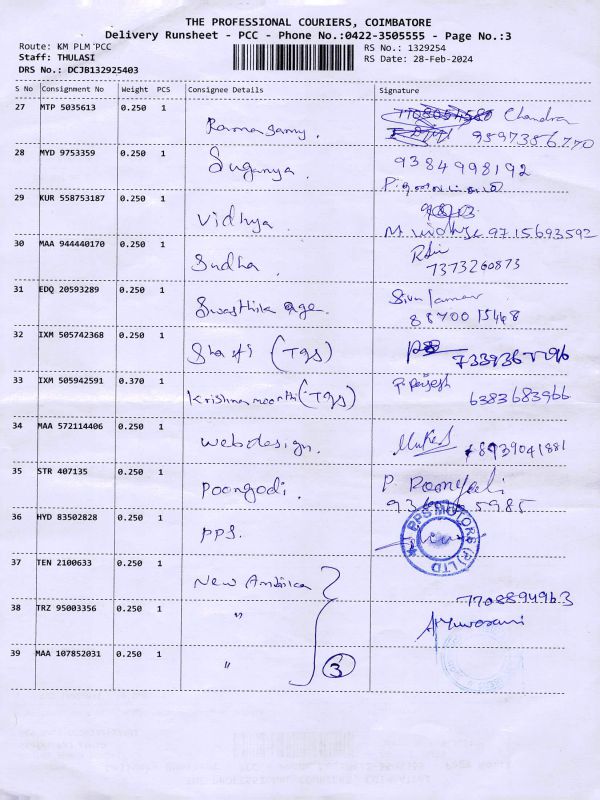 THE PROFESSIONAL COURIERS, COIMBATORE
Delivery Runsheet - PCC - Phone No.:0422-3505555 - Page No.:3
Route: KM PLM PCC
RS No.: 1329254
Staff: THULASI
RS Date: 28-Feb-2024
DRS No.: DCJB132925403
S No Consignment No Weight PCS Consignee Details Signature
27 MTP 5035613 0.250 1 Ramasamy. Chandra
9597356770
28 MYD 9753359 0.250 1 Suganya. 9384998192
29 KUR 558753187 0.250 1 Vidhya M. Vidhya 9715693592
30 MAA 944440170 0.250 1 Sudha
7373260873
31 EDQ 20593289 0.250 1 Swasthika age. Siva
88700 15468
32 IXM 505742368 0.250 1 Shakti (TGS)
33 IXM 505942591 0.370 1 Krishnamoorthi (TGS) P. Rajesh
6383683966
34 MAA 572114406 0.250 1 Webdesign. 8939041881
35 STR 407135 0.250 1 Poongodi. P. Poongodi
5985
36 HYD 83502828 0.250 1 PPS. PPS MOTORS (P) LTD
37 TEN 2100633 0.250 1 New Ambika 7708894963
38 TRZ 95003356 0.250 1 "
39 MAA 107852031 0.250 1 " 3